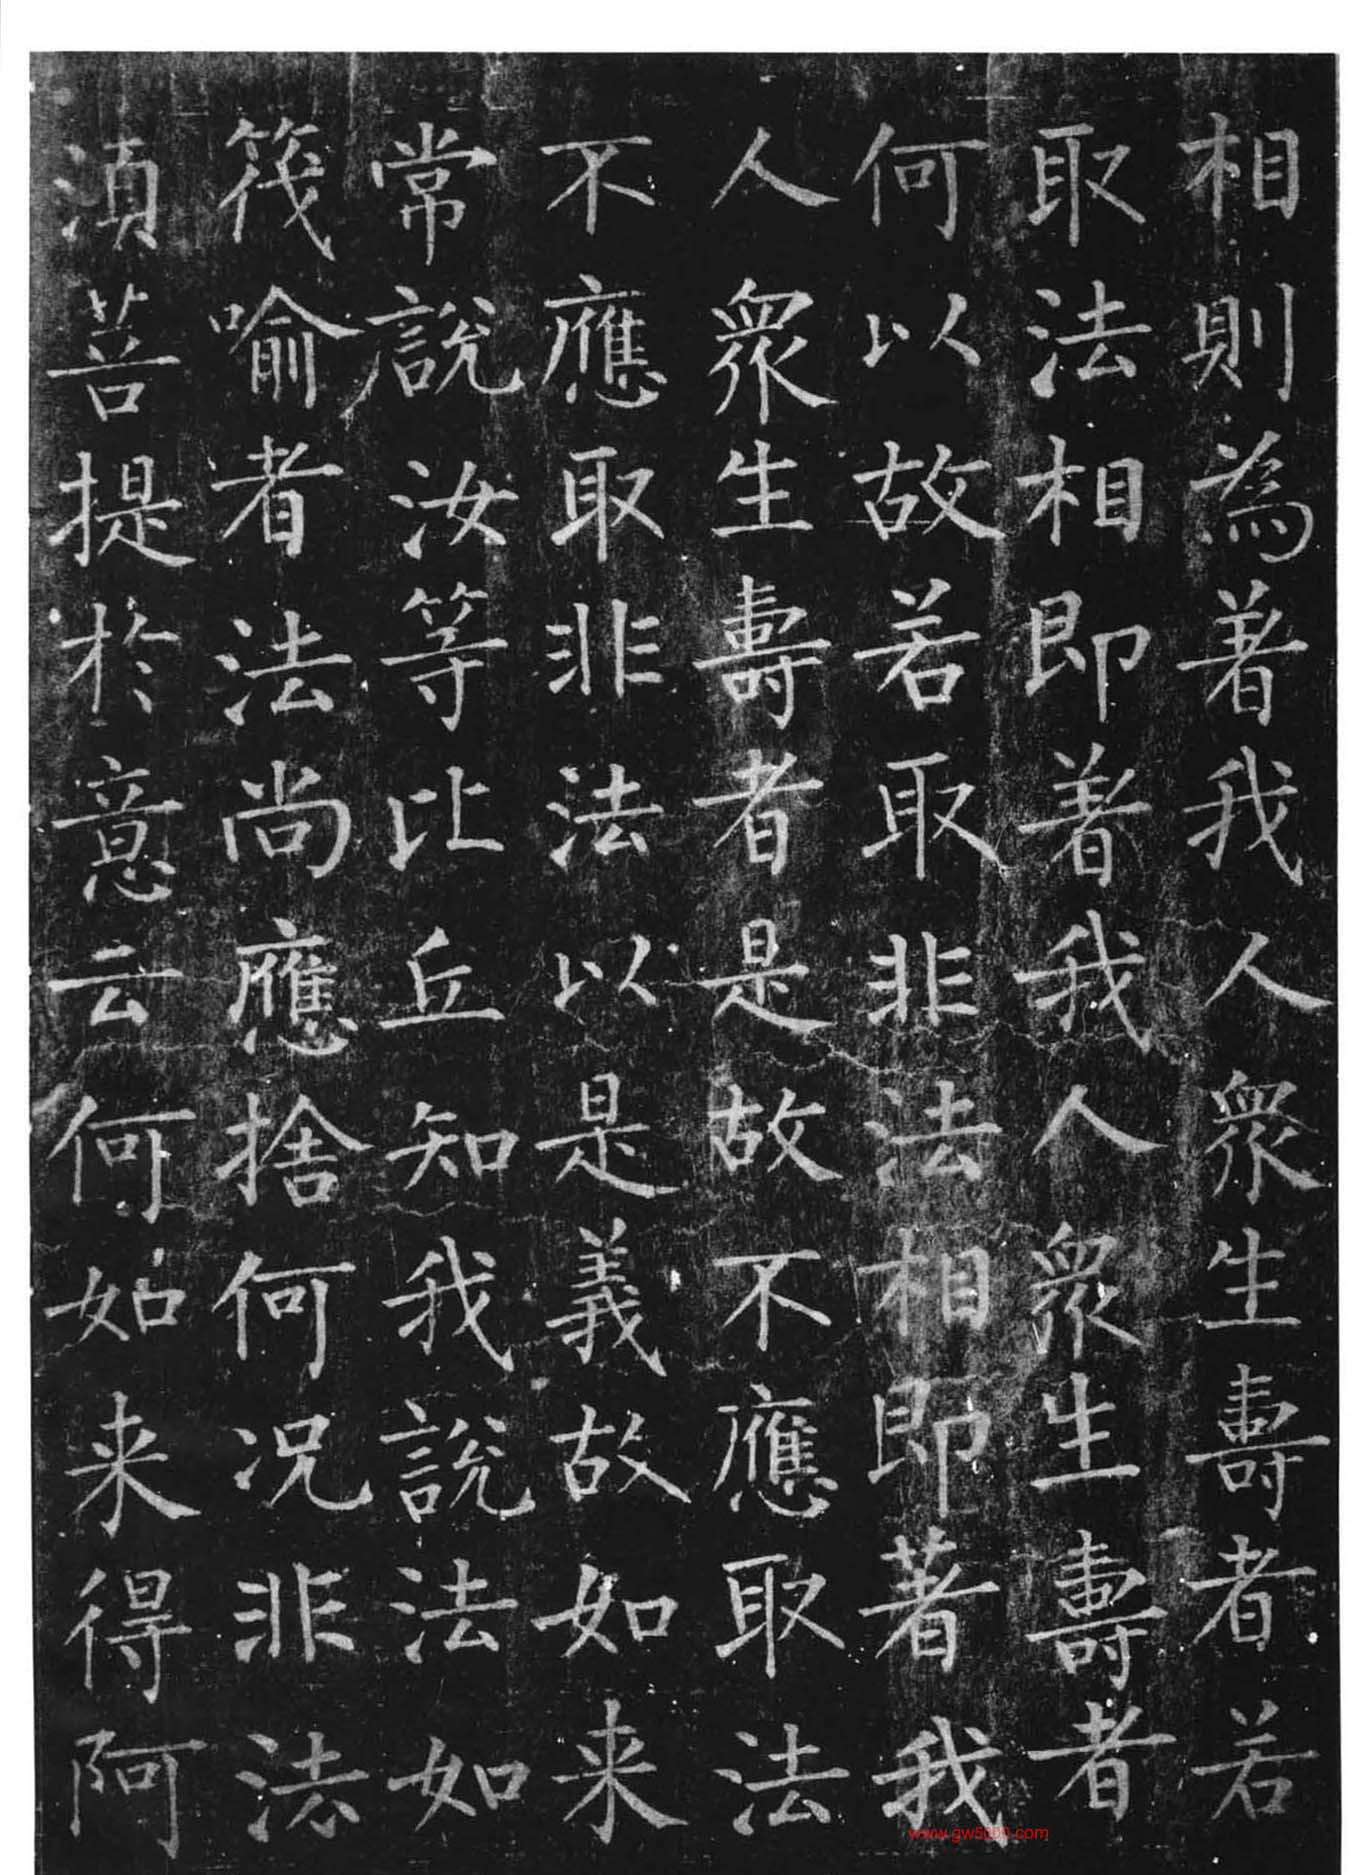 相則為著我人衆生壽者若
取法相即著我人衆生壽者
何以故若取非法相即著我
人衆生壽者是故不應取法
不應取非法以是義故如来
常說汝等比丘知我說法如
筏喻者法尚應捨何况非法
湏菩提於意云何如来得阿
www.gw5000.com